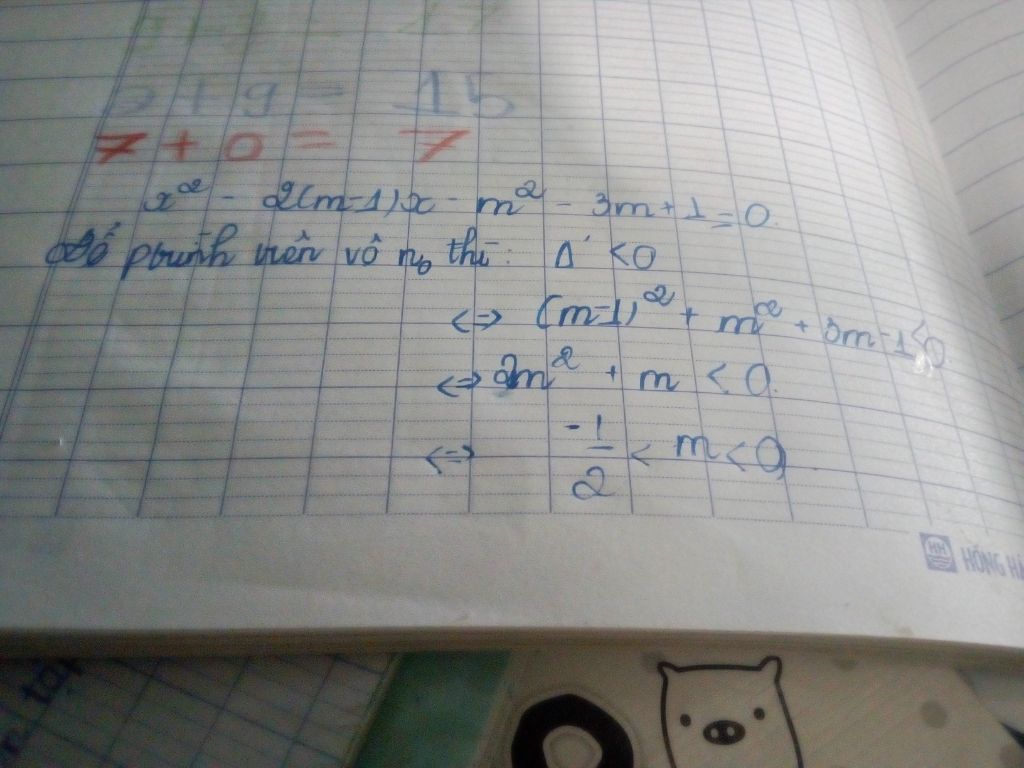 + 9 = 15
7 + 0 = 7
x² - 2(m-1)x - m² - 3m + 1 = 0.
Để phương trình trên vô n₀ thì: Δ' < 0
<=> (m-1)² + m² + 3m - 1 < 0.
<=> 2m² + m < 0.
<=> -1/2 < m < 0
HH HỒNG HÀ